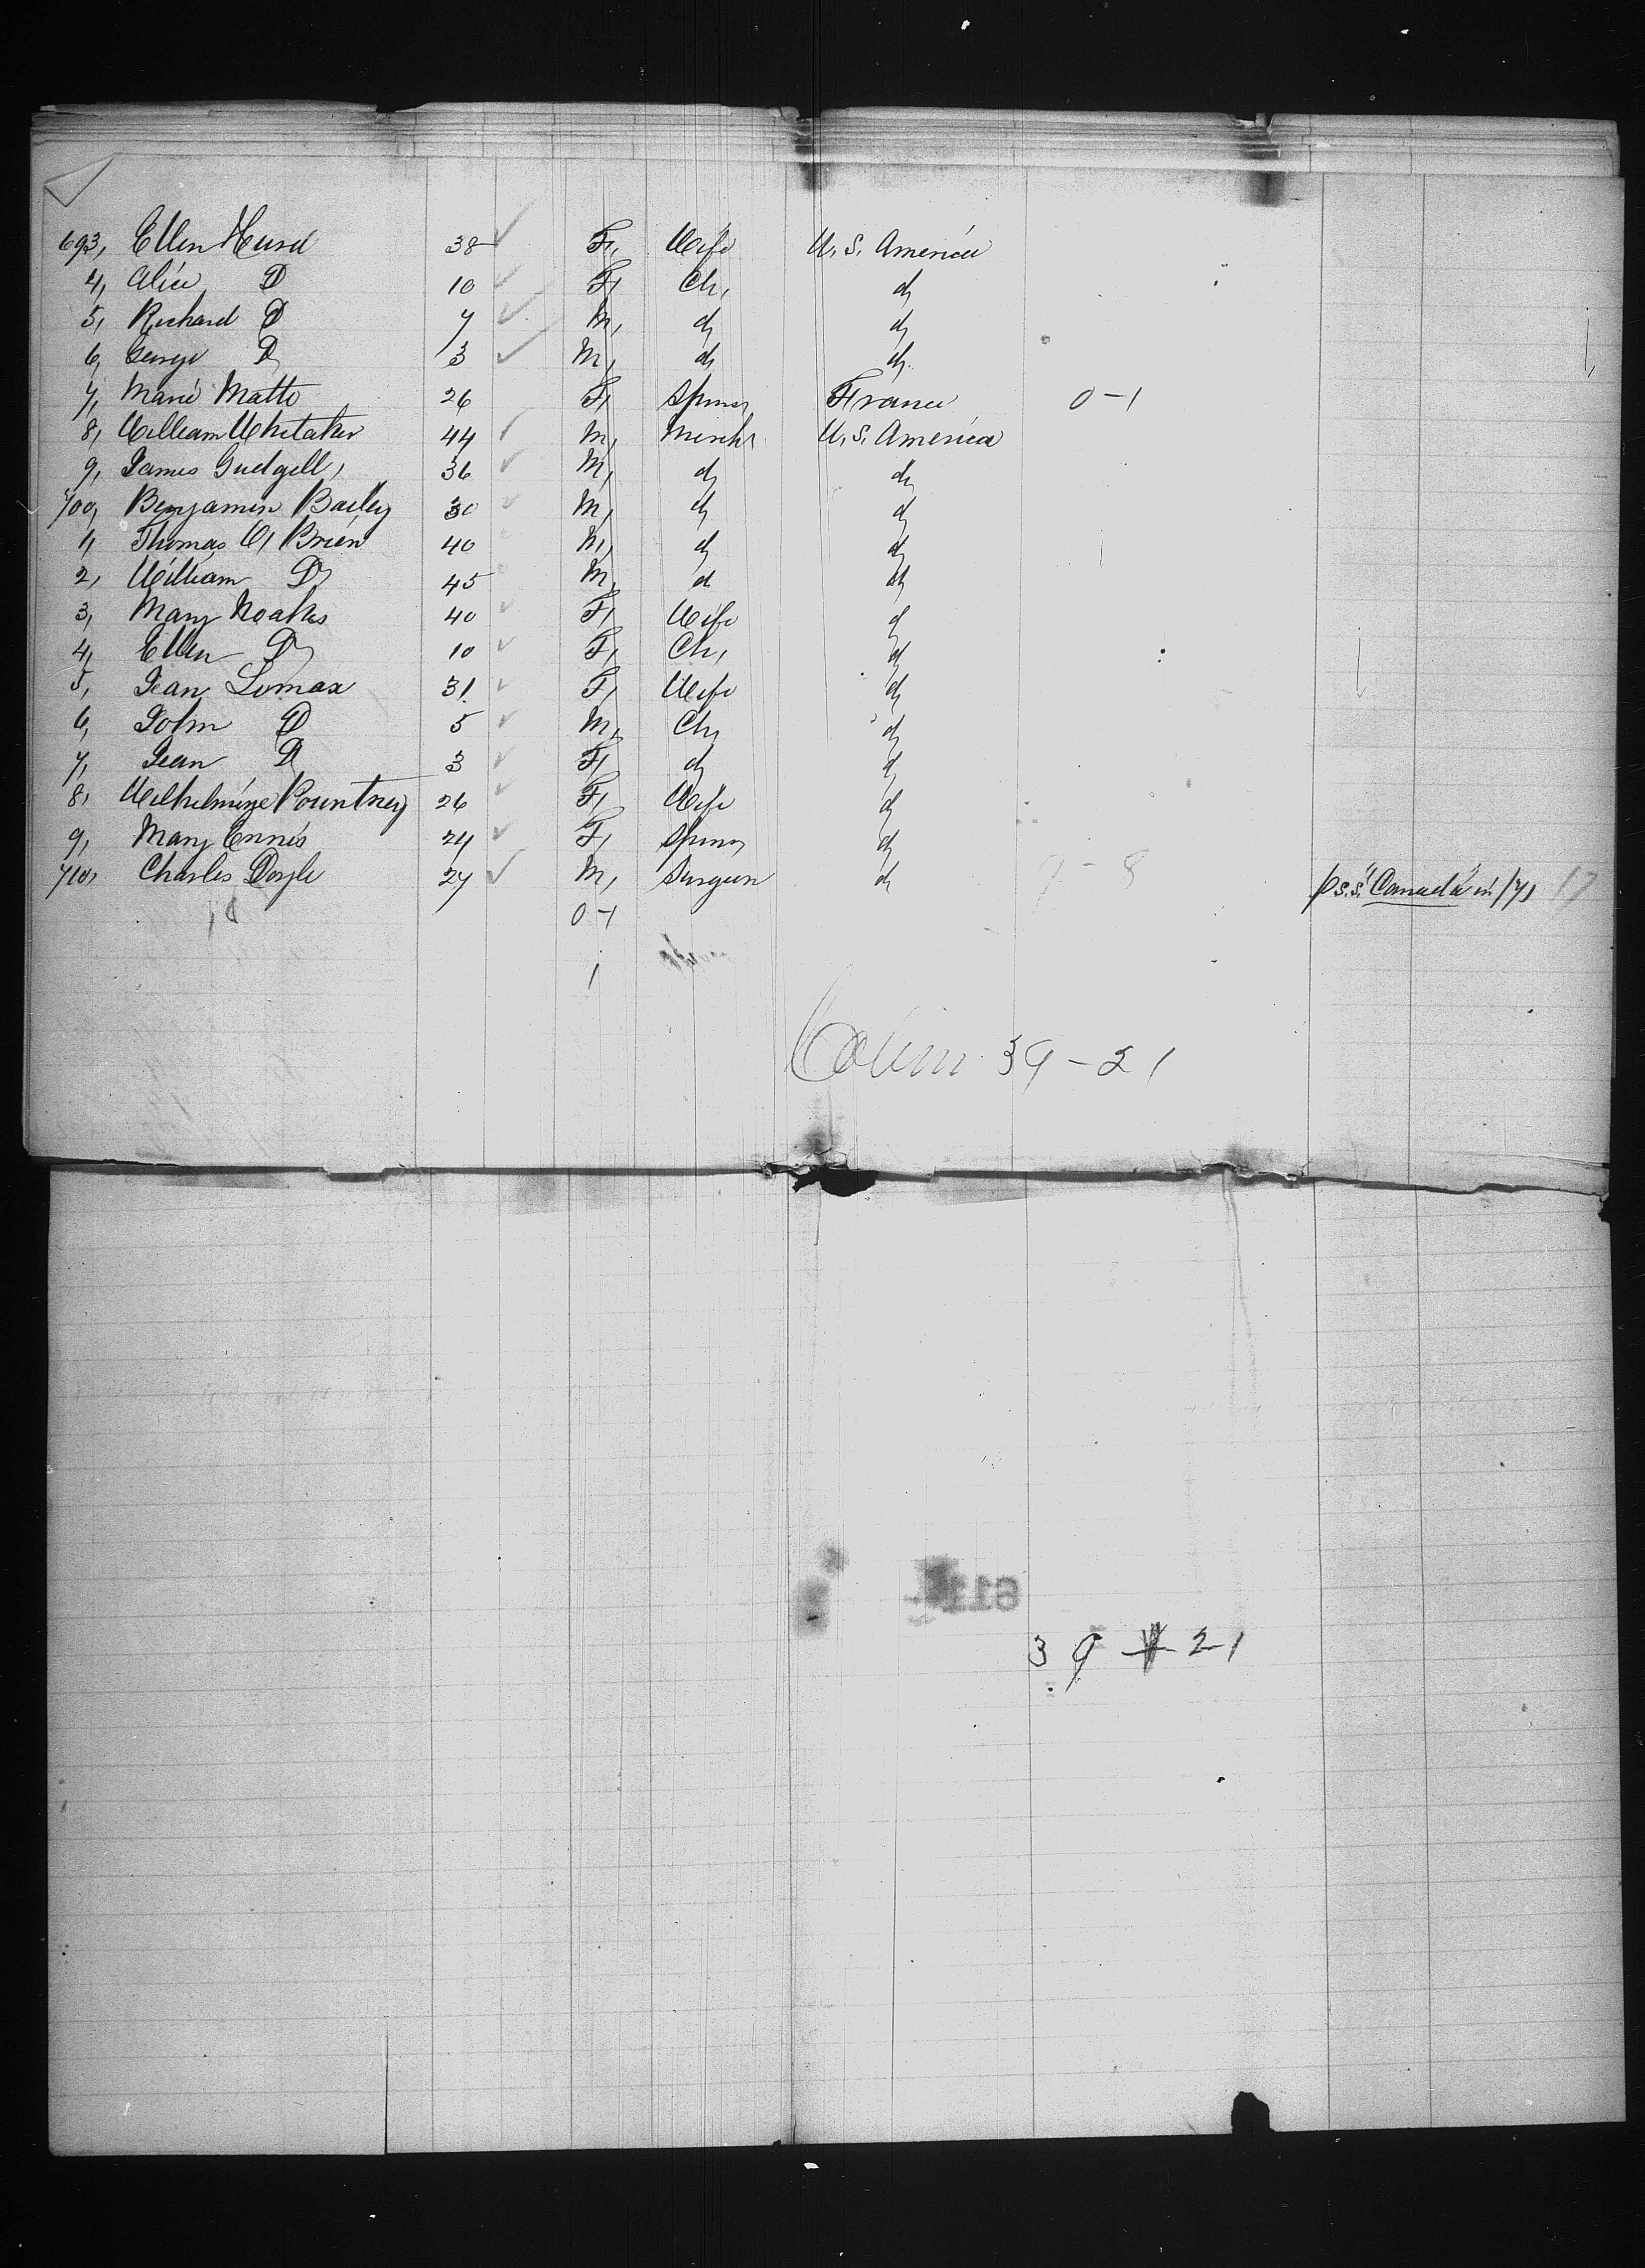 693, Ellen Hurd 38 ✓ F, Wife U. S. America
4, Alice D 10 ✓ F, Ch, d
5, Richard D 7 ✓ M, d d
6, George D 3 ✓ M, d d
7, Marie Matte 26 F, Spinr France 0-1
8, William Whitaker 44 ✓ M, Mercht U. S. America
9, James Gudgell, 36 ✓ M, d d
700, Benjamin Bailey 30 ✓ M, d d
1, Thomas O, Brien 40 M, d d
2, William D 45 M, d d
3, Mary Noakes 40 ✓ F, Wife d
4, Ellen D 10 ✓ F, Ch, d
5, Jean Lomax 31 ✓ F, Wife d
6, John D 5 ✓ M, Ch, d
7, Jean D 3 ✓ F, d d
8, Wilhelmine Pountney 26 ✓ F, Wife d
9, Mary Ennis 24 ✓ F, Spinr d
710, Charles Doyle 27 ✓ M, Surgeon d 9-8 p s.s. "Canada" in /71 17
0-1
1
39-21
39 21